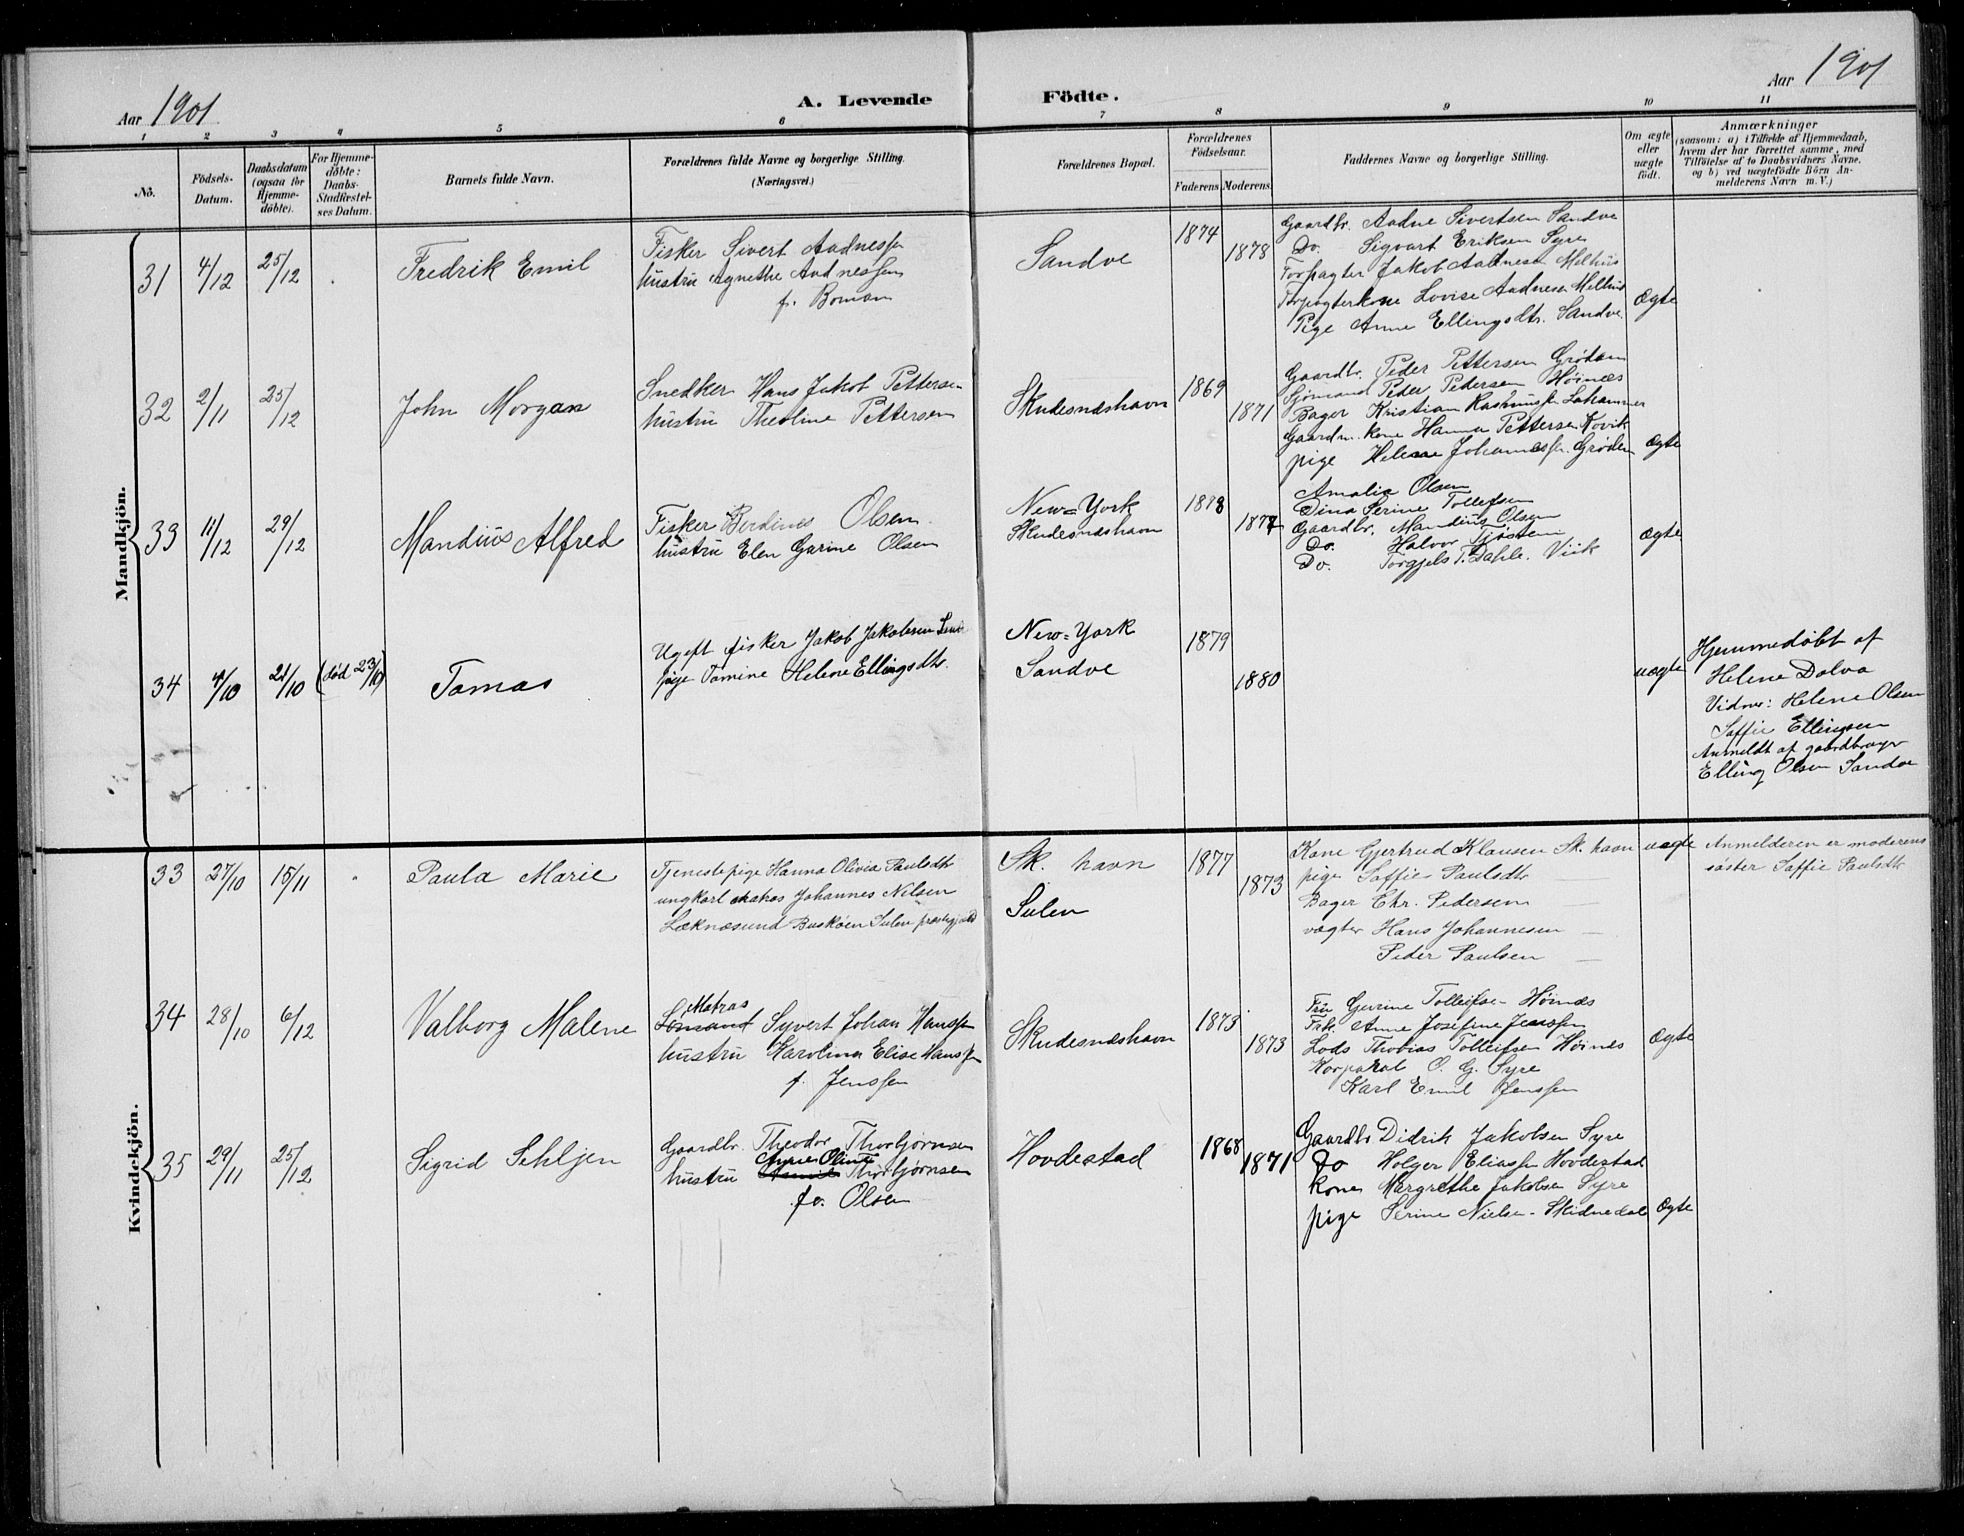 Aar 1901
A. Levende Födte.
Aar 1901
1 2 3 4 5 6 7 8 9 10 11
No.
Födsels-Datum.
Daabsdatum (ogsaa for Hjemmedöbte).
For Hjemmedöbte: Daabs-Stadfestelses Datum.
Barnets fulde Navn.
Forældrenes fulde Navne og borgerlige Stilling.
(Næringsvei.)
Forældrenes Bopæl.
Forældrenes Födselsaar.
Faderens. Moderens.
Faddernes Navne og borgerlige Stilling.
Om ægte eller uægte födt.
Anmærkninger
(saasom: a) i Tilfælde af Hjemmedaab,
hvem der har forrettet samme, med
Tilföielse af to Daabsvidners Navne.
og b) ved uægtefödte Börn Anmelderens Navn m. V.)
Mandkjön.
31 4/12 25/12 Fredrik Emil
Fisker Sivert Aadnessen
hustru Agnethe Aadnessen
f. Boman
Sandve
1874 1878
Gaardbr. Aadne Sivertsen Sandve
Do. Sigvart Eriksen Syre
Forpagter Jakob Aadnesen Melhus
Forpagterkone Lovise Aadnesen Melhus
Pige Anne Ellingsdtr. Sandve.
Ægte
32 2/11 25/12 John Morgan
Snedker Hans Jakob Pettersen
hustru Theoline Pettersen
Skudesneshavn
1869 1871
Gaardbr. Peder Pettersen Grødem
Sjömand Peder Pedersen Høines
Bager Kristian Rasmussen Lahammer
Gaardm. kone Hanna Pettersen Kovik
pige Helene Johannessen Grødem
Ægte
33 11/12 29/12 Mandius Alfred
Fisker Berdines Olsen
hustru Elen Gurine Olsen
New=York
Skudesneshavn
1878 1877
Amalia Olsen
Dina Serine Tollefsen
Gaardbr. Mandius Olsen
Do. Halvor Tjøstem
Do. Torgjels T. Dahle. Viik
Ægte
34 4/10 21/10 (død 23/10) Tomas
Ugift fisker Jakob Jakobsen
pige Tomine Helene Ellingsdtr.
New=York
Sandve
1879 1880
uægte
Hjemmedøbt af
Helene Dalva
Vidner: Helene Olsen
Saffie Ellingsen
Anmeldt af gaardbruger
Elling Olsen Sandve
Kvindekjön.
33 27/10 15/11 Paula Marie
Tjenestepige Hanna Olivia Paulsdtr
ungkarl matros Johannes Nilsen
Læknæsund Buskøen Sulen præstegjeld
Sk. havn
Sulen
1877 1873
Kone Gjertrud Klausen Sk. havn
pige Saffie Paulsdtr
Bager Chr. Pedersen
vægter Hans Johannesen
Peder Paulsen
uægte
Anmelderen er moderens
søster Saffie Paulsdtr
34 28/10 6/12 Valborg Malene
Matros
Sömand Syvert Johan Hanssen
hustru Karolina Elise Hanssen
f. Jenssen
Skudesneshavn
1873 1873
Fru Gurine Tolleifsen Høines
Frk. Anne Josefine Jenssen
Lods Thobias Tolleifsen Høines
Korporal O. G. Syre
Karl Emil Jenssen
Ægte
35 29/11 25/12 Sigrid Sehljen
Gaardbr. Theodor Thorbjørnsen
Olina
hustru Thorbjørnsen
fø. Olsen
Hovdestad
1868 1871
Gaardbr Didrik Jakobsen Syre
Do Holger Eliassen Hovdestad
kone Margrethe Jakobsen Syre
pige Serine Nielsen Skidnedal
Ægte